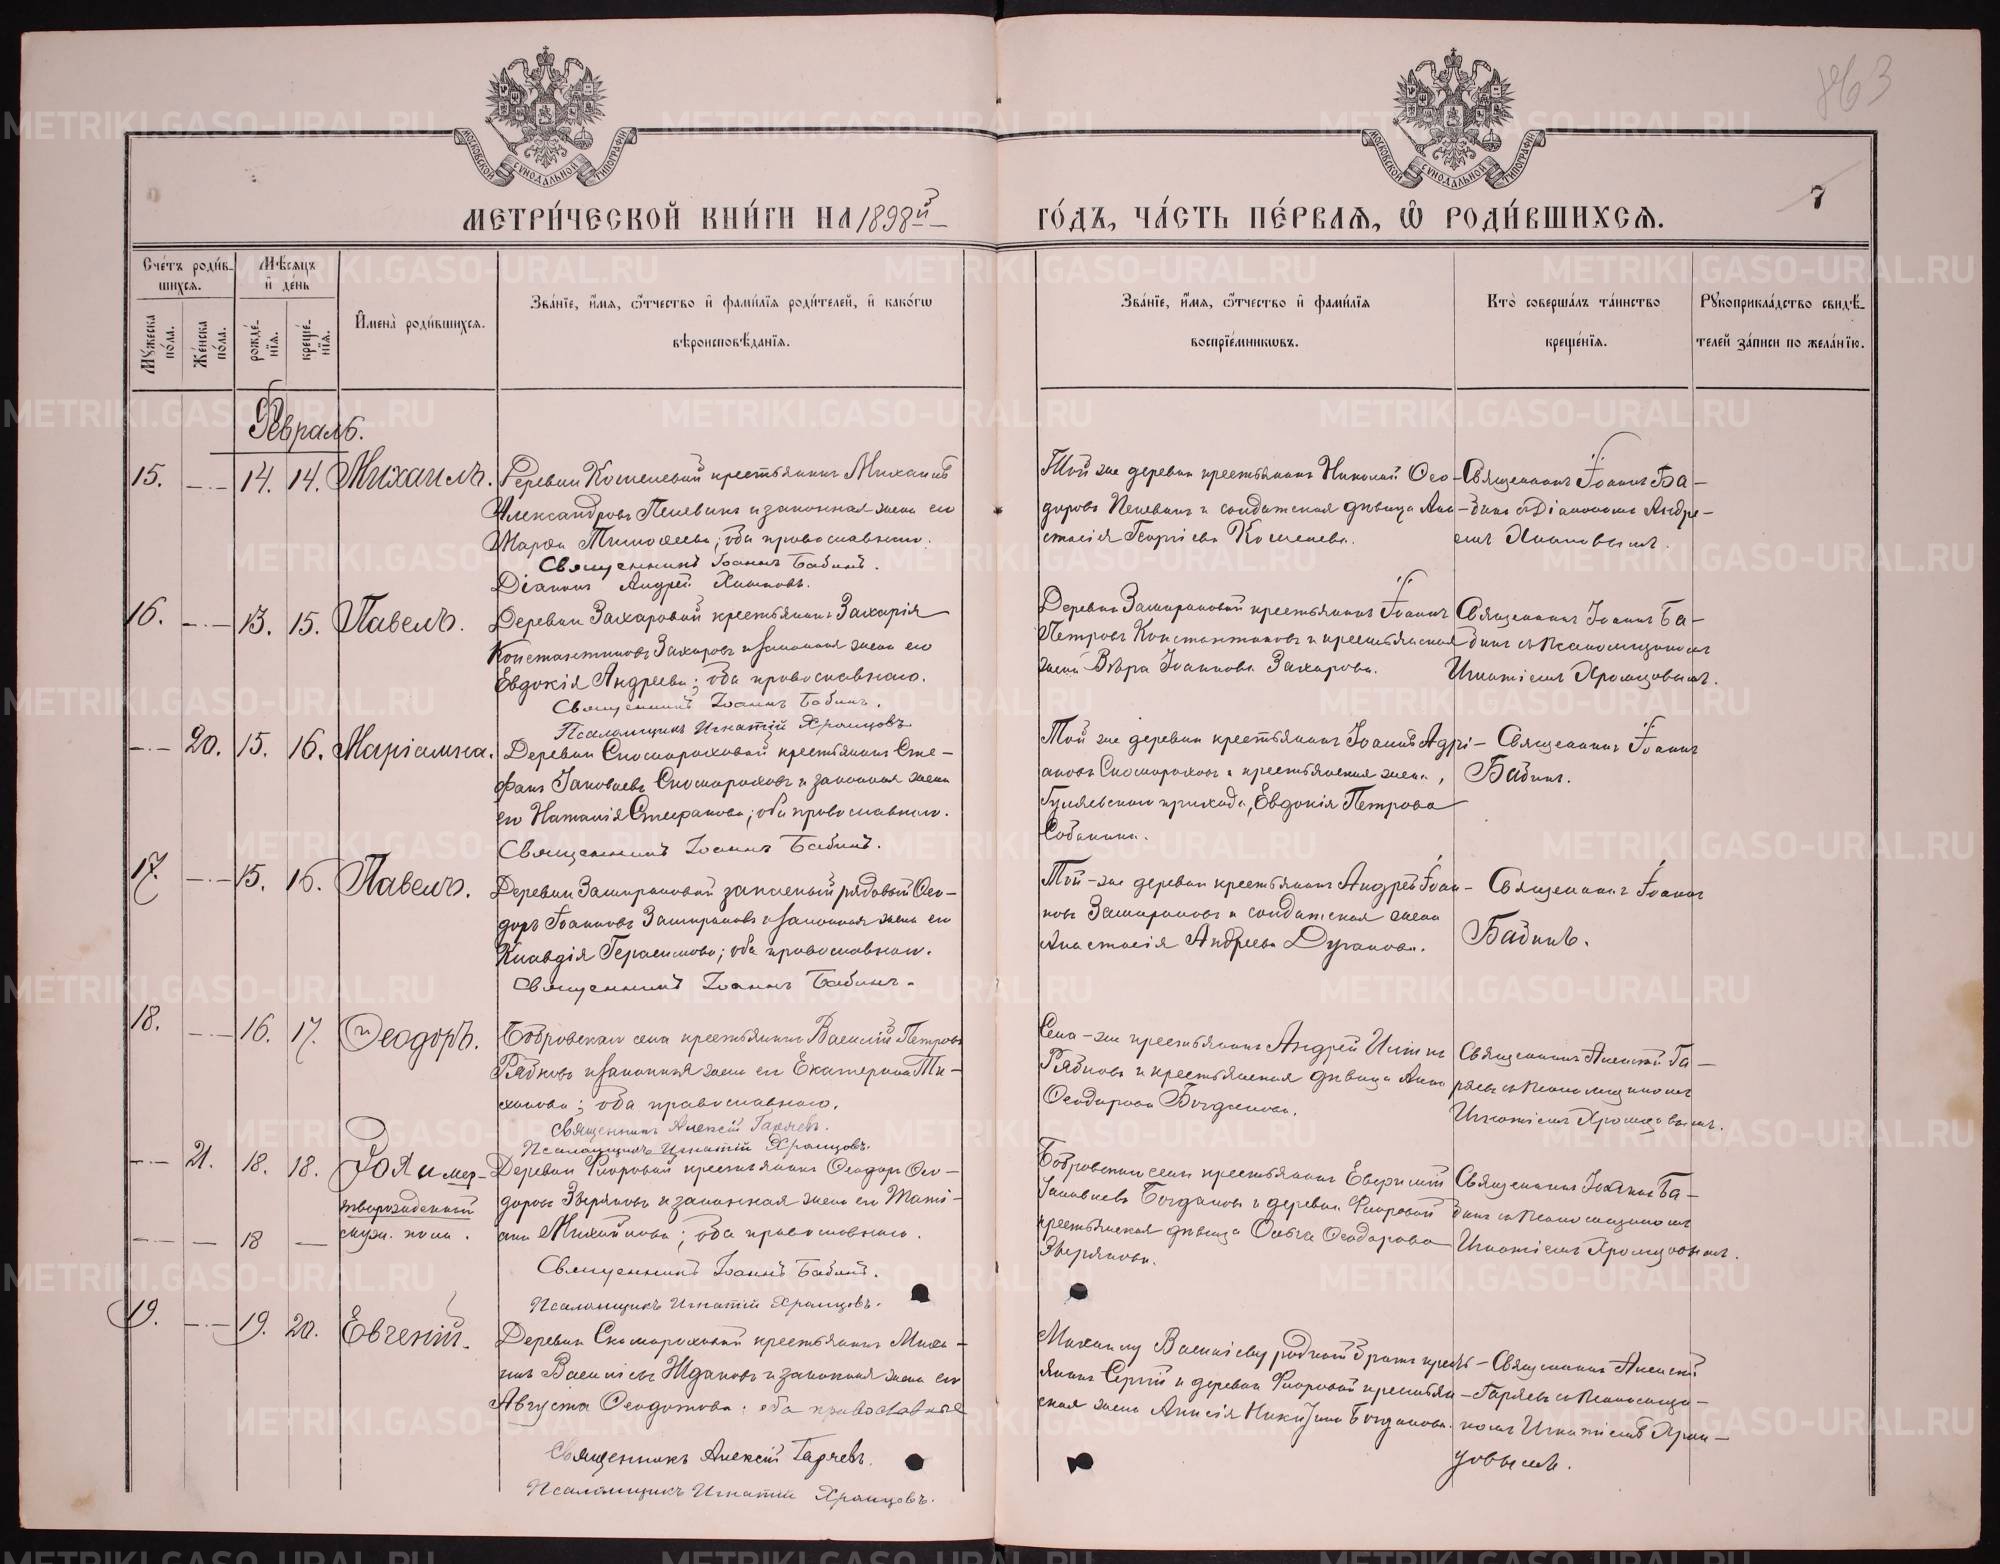 МОСКОВСКОЙ СѴНОДАЛЬНОЙ ТИПОГРАФІИ
МОСКОВСКОЙ СѴНОДАЛЬНОЙ ТИПОГРАФІИ
763
7
МЕТРИ́ЧЕСКОЙ КНИ́ГИ НА 1898й
ГО́ДЪ, ЧА́СТЬ ПЕ́РВАЯ, Ѽ РОДИ́ВШИХСЯ.
Сче́тъ роди́в-
шихся.
Мꙋжеска по́ла.
Же́нска по́ла.
Мѣ́сяцъ и҆ де́нь
рожде́нїя.
креще́нїя.
И҆мена̀ роди́вшихся.
Зва́нїе, и҆́мя, ѻ҆́тчество и҆ фами́лїя роди́телей, и҆ како́гѡ
вѣроисповѣ́данїя.
Зва́нїе, и҆́мя, ѻ҆́тчество и҆ фами́лїя
воспрїе́мникѡвъ.
Кто̀ соверша́лъ та́инство
креще́нїя.
Рꙋкоприкла́дство свидѣ́-
телей за́писи по жела́нїю.
Февраль.
15. 14. 14. Михаилъ.
Деревни Кошелевой крестьянинъ Михаилъ
Александровъ Пелевинъ и законная жена его
Марѳа Тимоѳеева; оба православнаго.
Священникъ Іоаннъ Бабинъ.
Діаконъ Андрей Хионовъ.
Той же деревни крестьянинъ Николай Ѳео-
доровъ Пелевинъ и солдатская дѣвица Ана-
стасія Георгіева Кошелева.
Священникъ Іоаннъ Ба-
бинъ съ Діакономъ Андре-
емъ Хионовымъ.
16. 13. 15. Павелъ.
Деревни Захаровой крестьянинъ Захарія
Константиновъ Захаровъ и законная жена его
Евдокія Андреева; оба православнаго.
Священникъ Іоаннъ Бабинъ.
Псаломщикъ Игнатій Храмцовъ.
Деревни Замираловой крестьянинъ Іоаннъ
Петровъ Константиновъ и крестьянская
жена Вѣра Іоаннова Захарова.
Священникъ Іоаннъ Ба-
бинъ съ псаломщикомъ
Игнатіемъ Храмцовымъ.
20. 15. 16. Маріамна.
Деревни Скомороховой крестьянинъ Сте-
фанъ Іаковлевъ Скомороховъ и законная жена
его Наталія Стефанова; оба православнаго.
Священникъ Іоаннъ Бабинъ.
Той же деревни крестьянинъ Іоаннъ Адрі-
ановъ Скомороховъ и крестьянская жена,
Гуляевскаго прихода, Евдокія Петрова
Собакина.
Священникъ Іоаннъ
Бабинъ.
17. 15. 16. Павелъ.
Деревни запасный рядовый Ѳео-
доръ Іоанновъ и законная жена его
Клавдія Герасимова; оба православнаго.
Священникъ Іоаннъ Бабинъ.
Той-же деревни крестьянинъ Андрей Іоан-
новъ и солдатская жена
Анастасія Андреева Дуганова.
Священникъ Іоаннъ
Бабинъ.
18. 16. 17. Ѳеодоръ.
Бобровскаго села крестьянинъ Василій Петровъ
Рябковъ и законная жена его Екатерина Ми-
хаилова; оба православнаго.
Священникъ Алексій Гаряевъ.
Псаломщикъ Игнатій Храмцовъ.
Села-же крестьянинъ Андрей Ильинъ
Рябковъ и крестьянская дѣвица Анна
Ѳеодорова Богданова.
Священникъ Алексій Га-
ряевъ съ псаломщикомъ
Игнатіемъ Храмцовымъ.
21. 18. 18. Зоя и мер-
творожденный
муж. пола.
18
Деревни Флоровой крестьянинъ Ѳеодоръ Ѳео-
доровъ Звѣряковъ и законная жена его Тати-
ана Михайлова; оба православнаго.
Священникъ Іоаннъ Бабинъ.
Псаломщикъ Игнатій Храмцовъ.
Бобровскаго села крестьянинъ Евфимій
Іаковлевъ Богдановъ и деревни Флоровой
крестьянская дѣвица Ольга Ѳеодорова
Звѣрякова.
Священникъ Іоаннъ Ба-
бинъ съ псаломщикомъ
Игнатіемъ Храмцовымъ.
19. 19. 20. Евгеній.
Деревни Скомороховой крестьянинъ Миха-
илъ Васильевъ Ждановъ и законная жена его
Августа Ѳеодотова; оба православные
Священникъ Алексій Гаряевъ.
Псаломщикъ Игнатій Храмцовъ.
Михаилу Васильеву родной братъ кресть-
янинъ Сергій и деревни Флоровой крестьян-
ская жена Анисія Никитина Богданова.
Священникъ Алексій
Гаряевъ съ псаломщи-
комъ Игнатіемъ Храм-
цовымъ.
METRIKI.GASO-URAL.RU